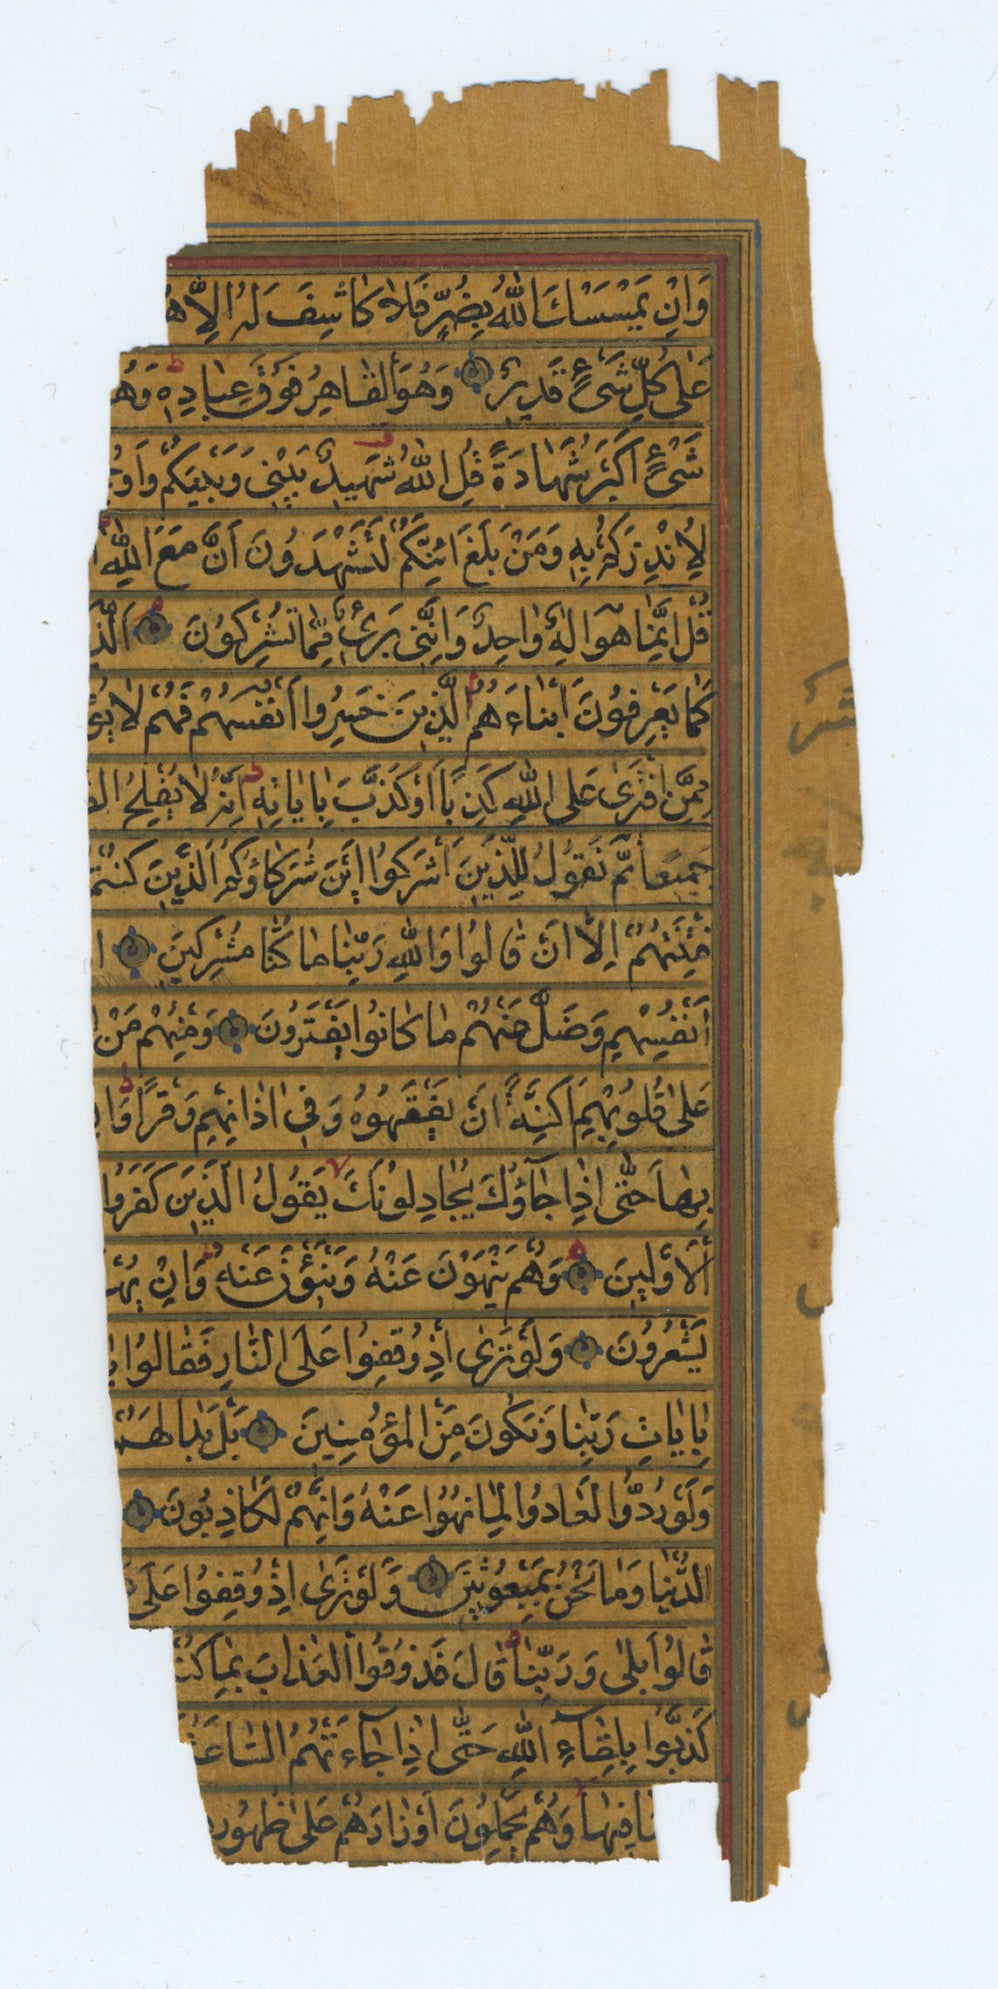 وَاِنْ يَمْسَسْكَ اللّٰهُ بِضُرٍّ فَلَا كَاشِفَ لَهُ اِلَّا هُ
عَلٰى كُلِّ شَىْءٍ قَدِيرٌ وَهُوَ الْقَاهِرُ فَوْقَ عِبَادِهٖ وَهُ
شَىْءٍ اَكْبَرُ شَهَادَةً قُلِ اللّٰهُ شَهِيدٌ بَيْنِى وَبَيْنَكُمْ وَاُو
لِاُنْذِرَكُمْ بِهٖ وَمَنْ بَلَغَ اَئِنَّكُمْ لَتَشْهَدُونَ اَنَّ مَعَ اللّٰهِ
قُلْ اِنَّمَا هُوَ اِلٰهٌ وَاحِدٌ وَاِنَّنِى بَرِىءٌ مِمَّا تُشْرِكُونَ اَلَّذ
كَمَا يَعْرِفُونَ اَبْنَاءَهُمْ اَلَّذِينَ خَسِرُوا اَنْفُسَهُمْ فَهُمْ لَا يُؤ
مِمَّنِ افْتَرٰى عَلَى اللّٰهِ كَذِبًا اَوْ كَذَّبَ بِاٰيَاتِهٖ اِنَّهُ لَا يُفْلِحُ ال
جَمِيعًا ثُمَّ نَقُولُ لِلَّذِينَ اَشْرَكُوا اَيْنَ شُرَكَاؤُكُمُ الَّذِينَ كُنْتُمْ
فِتْنَتُهُمْ اِلَّا اَنْ قَالُوا وَاللّٰهِ رَبِّنَا مَا كُنَّا مُشْرِكِينَ ا
اَنْفُسِهِمْ وَضَلَّ عَنْهُمْ مَا كَانُوا يَفْتَرُونَ وَمِنْهُمْ مَنْ
عَلٰى قُلُوبِهِمْ اَكِنَّةً اَنْ يَفْقَهُوهُ وَفِى اٰذَانِهِمْ وَقْرًا وَاِ
بِهَا حَتّٰى اِذَا جَآؤُكَ يُجَادِلُونَكَ يَقُولُ الَّذِينَ كَفَرُوا
الْاَوَّلِينَ وَهُمْ يَنْهَوْنَ عَنْهُ وَيَنْئَوْنَ عَنْهُ وَاِنْ يُهْ
يَشْعُرُونَ وَلَوْ تَرٰى اِذْ وُقِفُوا عَلَى النَّارِ فَقَالُوا
بِاٰيَاتِ رَبِّنَا وَنَكُونَ مِنَ الْمُؤْمِنِينَ بَلْ بَدَا لَهُمْ
وَلَوْ رُدُّوا لَعَادُوا لِمَا نُهُوا عَنْهُ وَاِنَّهُمْ لَكَاذِبُونَ
الدُّنْيَا وَمَا نَحْنُ بِمَبْعُوثِينَ وَلَوْ تَرٰى اِذْ وُقِفُوا عَلٰى
قَالُوا بَلٰى وَرَبِّنَا قَالَ فَذُوقُوا الْعَذَابَ بِمَا كُنْتُ
كَذَّبُوا بِلِقَآءِ اللّٰهِ حَتّٰى اِذَا جَآءَتْهُمُ السَّاعَةُ
نَا فِيهَا وَهُمْ يَحْمِلُونَ اَوْزَارَهُمْ عَلٰى ظُهُورِ